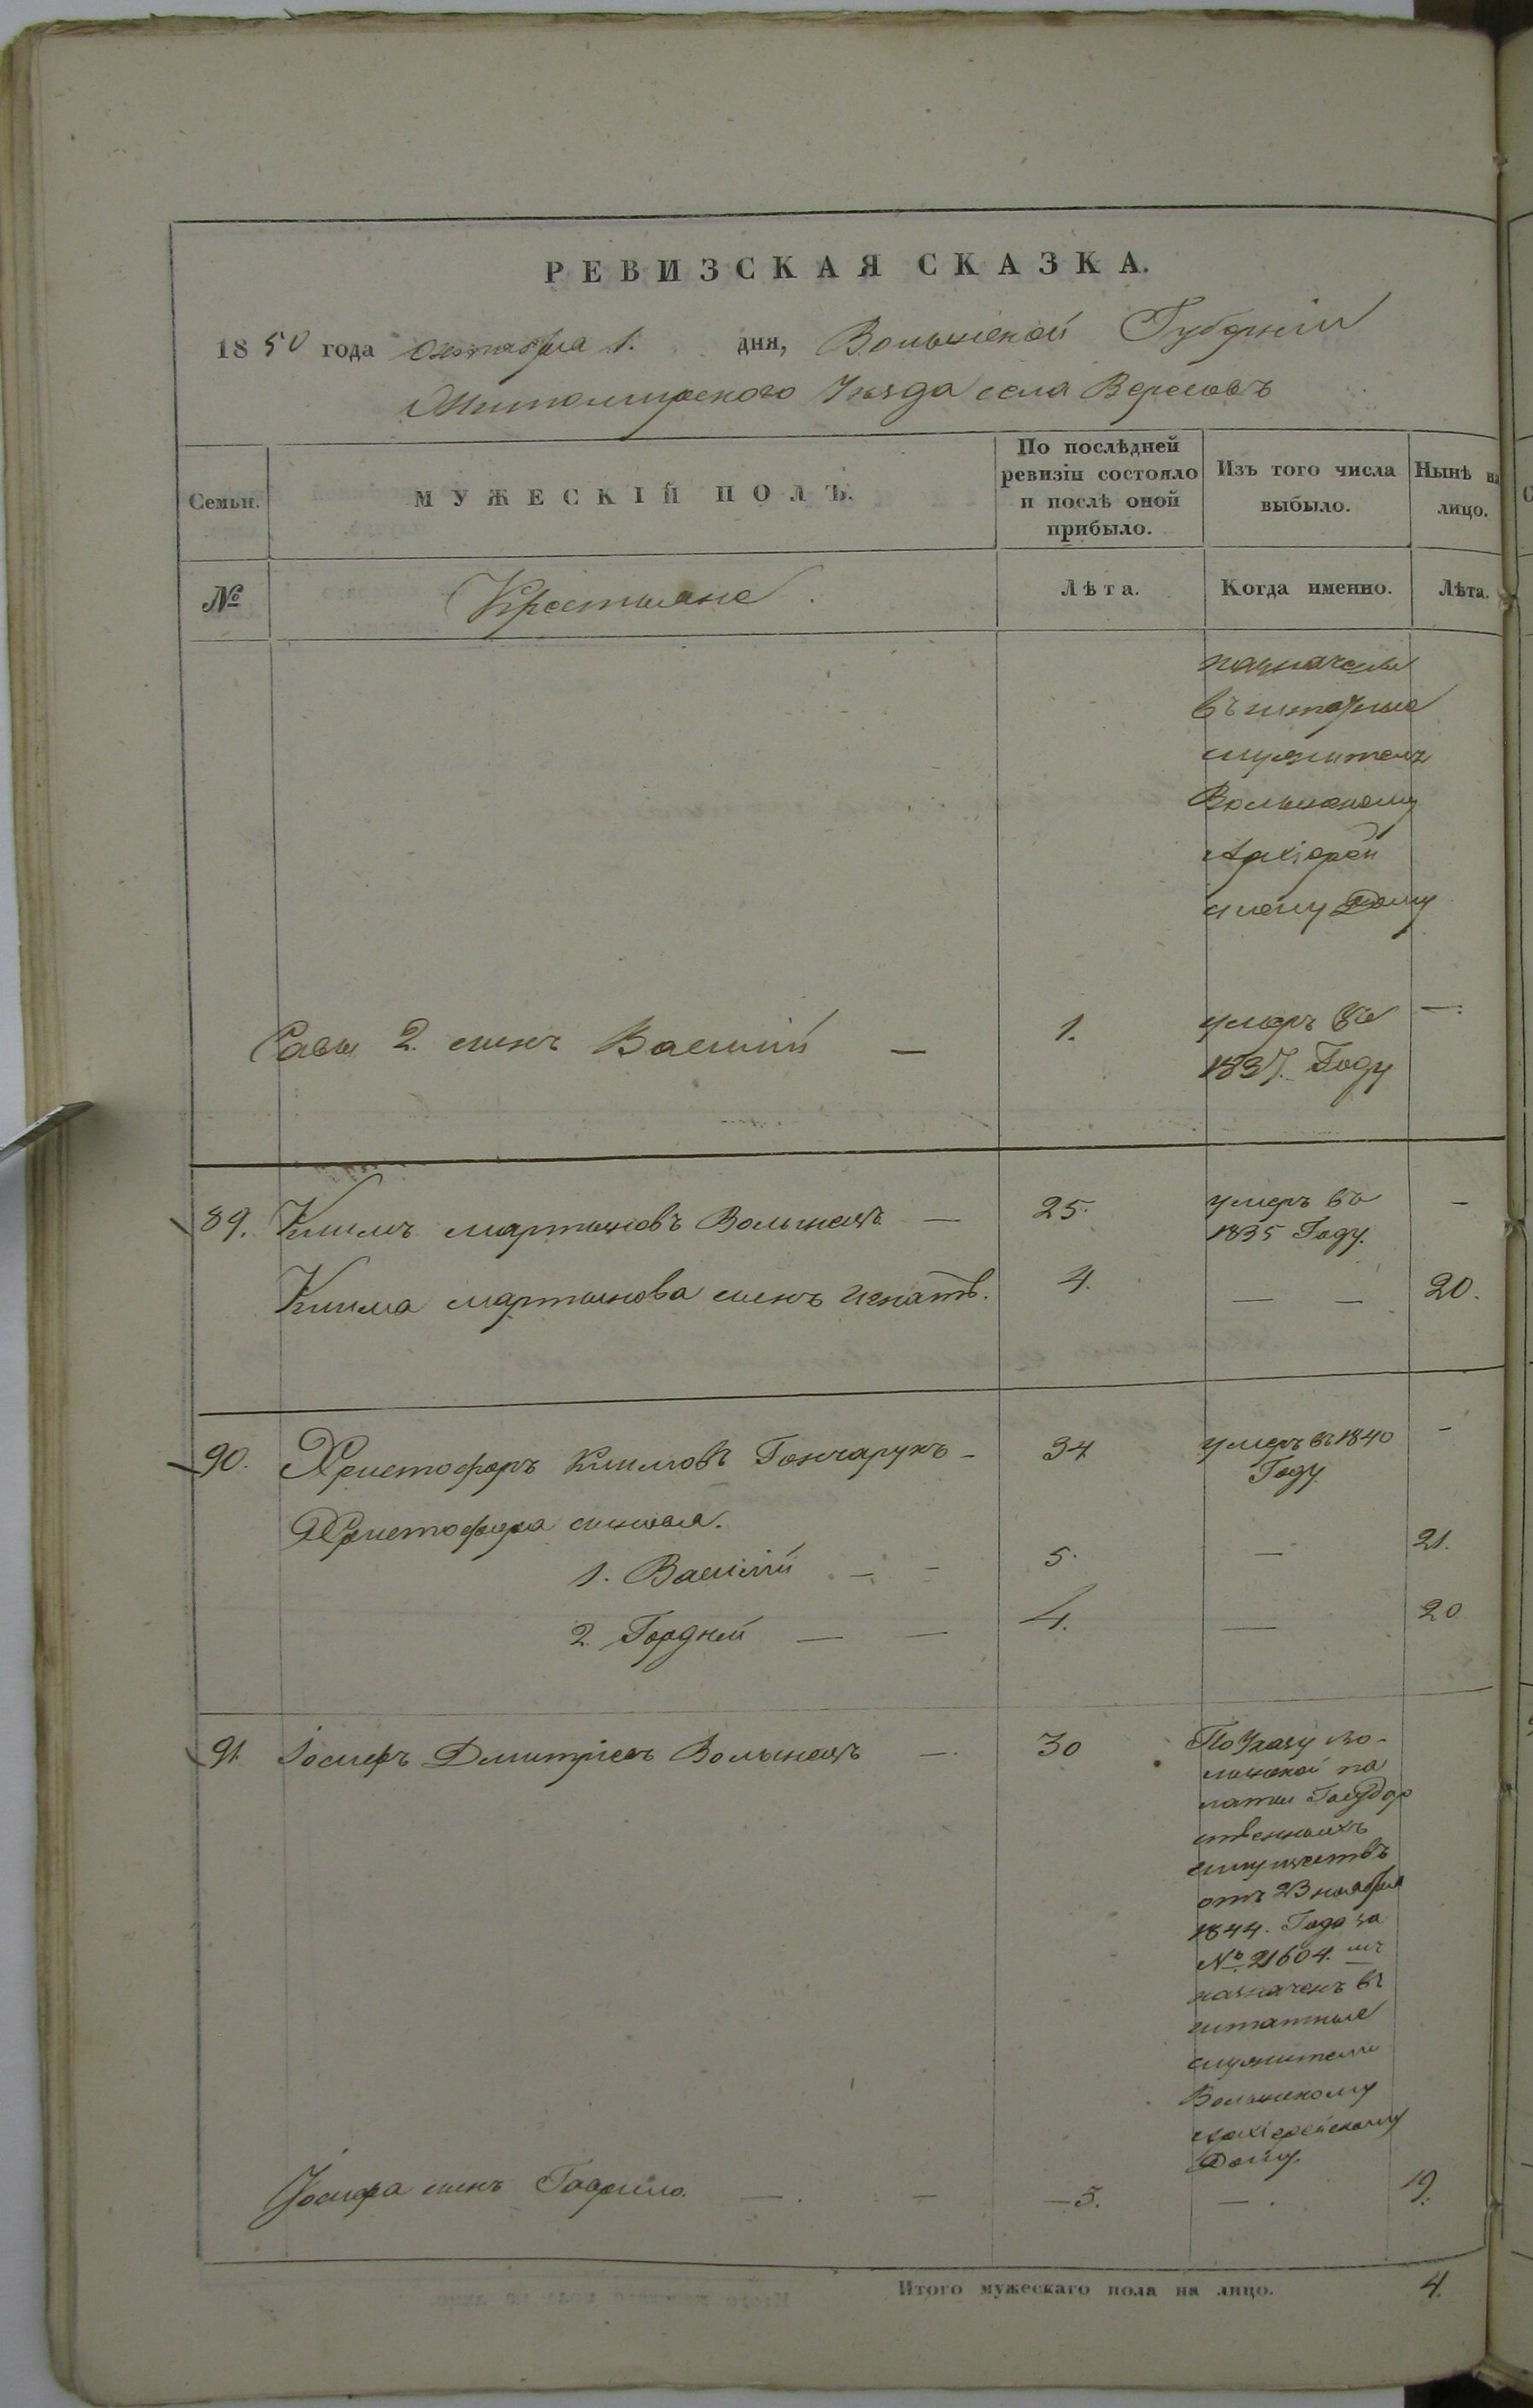 РЕВИЗСКАЯ СКАЗКА.
1850 года октября 1. дня, Волынской Губерніи
Житомирского Уѣзда села Вересовъ
Семьи.
МУЖЕСКІЙ ПОЛЪ.
По послѣдней ревизіи состояло и послѣ оной прибыло.
Изъ того числа выбыло.
Нынѣ на лицо.
№
Крестьяне.
Лѣта.
Когда именно.
Лѣта.
назначены
въ штатные
служители
Волынскому
Архіерей
скому Дому
Савы 2. сынъ Василій — 1. умеръ въ —
1837. Году
89. Климъ мартыновъ Волынецъ — 25. умеръ въ —
1835 Году.
Клима мартынова сынъ Игнатъ. 4. — — 20.
90. Христофоръ Климовъ Гончарукъ - 34 умеръ въ 1840 -
Году
Христофора сыновья.
1. Василій — - 5. — 21.
2. Гордій — — 4. — 20
91 Іосифъ Дмитріевъ Волынецъ — 30 По Указу Во-
лынской па
латы Государ
ственныхъ
имуществъ
отъ 23 ноября
1844. Года за
№ 21604. мъ
назначенъ въ
штатные
служители
Волынскому
Архіерейскому
Дому.
Іосифа сынъ Гаврило. — — — 5. — 19.
Итого мужескаго пола на лицо. 4.